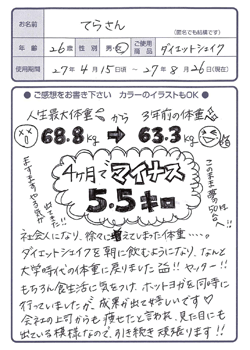 お名前 てらさん (匿名でも結構です)
年齢 26歳 性別 男・女 ご使用商品 ダイエットシェイク
使用期間 27年4月15日頃 ～ 27年8月26日(現在)
●ご感想をお書き下さい カラーのイラストもOK●
人生最大体重 から 3年前の体重
68.8kg → 63.3kg
ますますやる気が出てました
4ヶ月でマイナス
5.5キロ
このまま夢の50kg台へ!!
社会人になり、徐々に増えてしまった体重……。
ダイエットシェイクを朝に飲むようになり、なんと
大学時代の体重に戻りました!! ヤッター!!
もちろん食生活に気をつけ、ホットヨガも同時に
行っていましたが、成果が出て嬉しいです♡
会社の上司からも痩せたと言われ、見た目にも
出ている模様なので、引き続き頑張ります!!